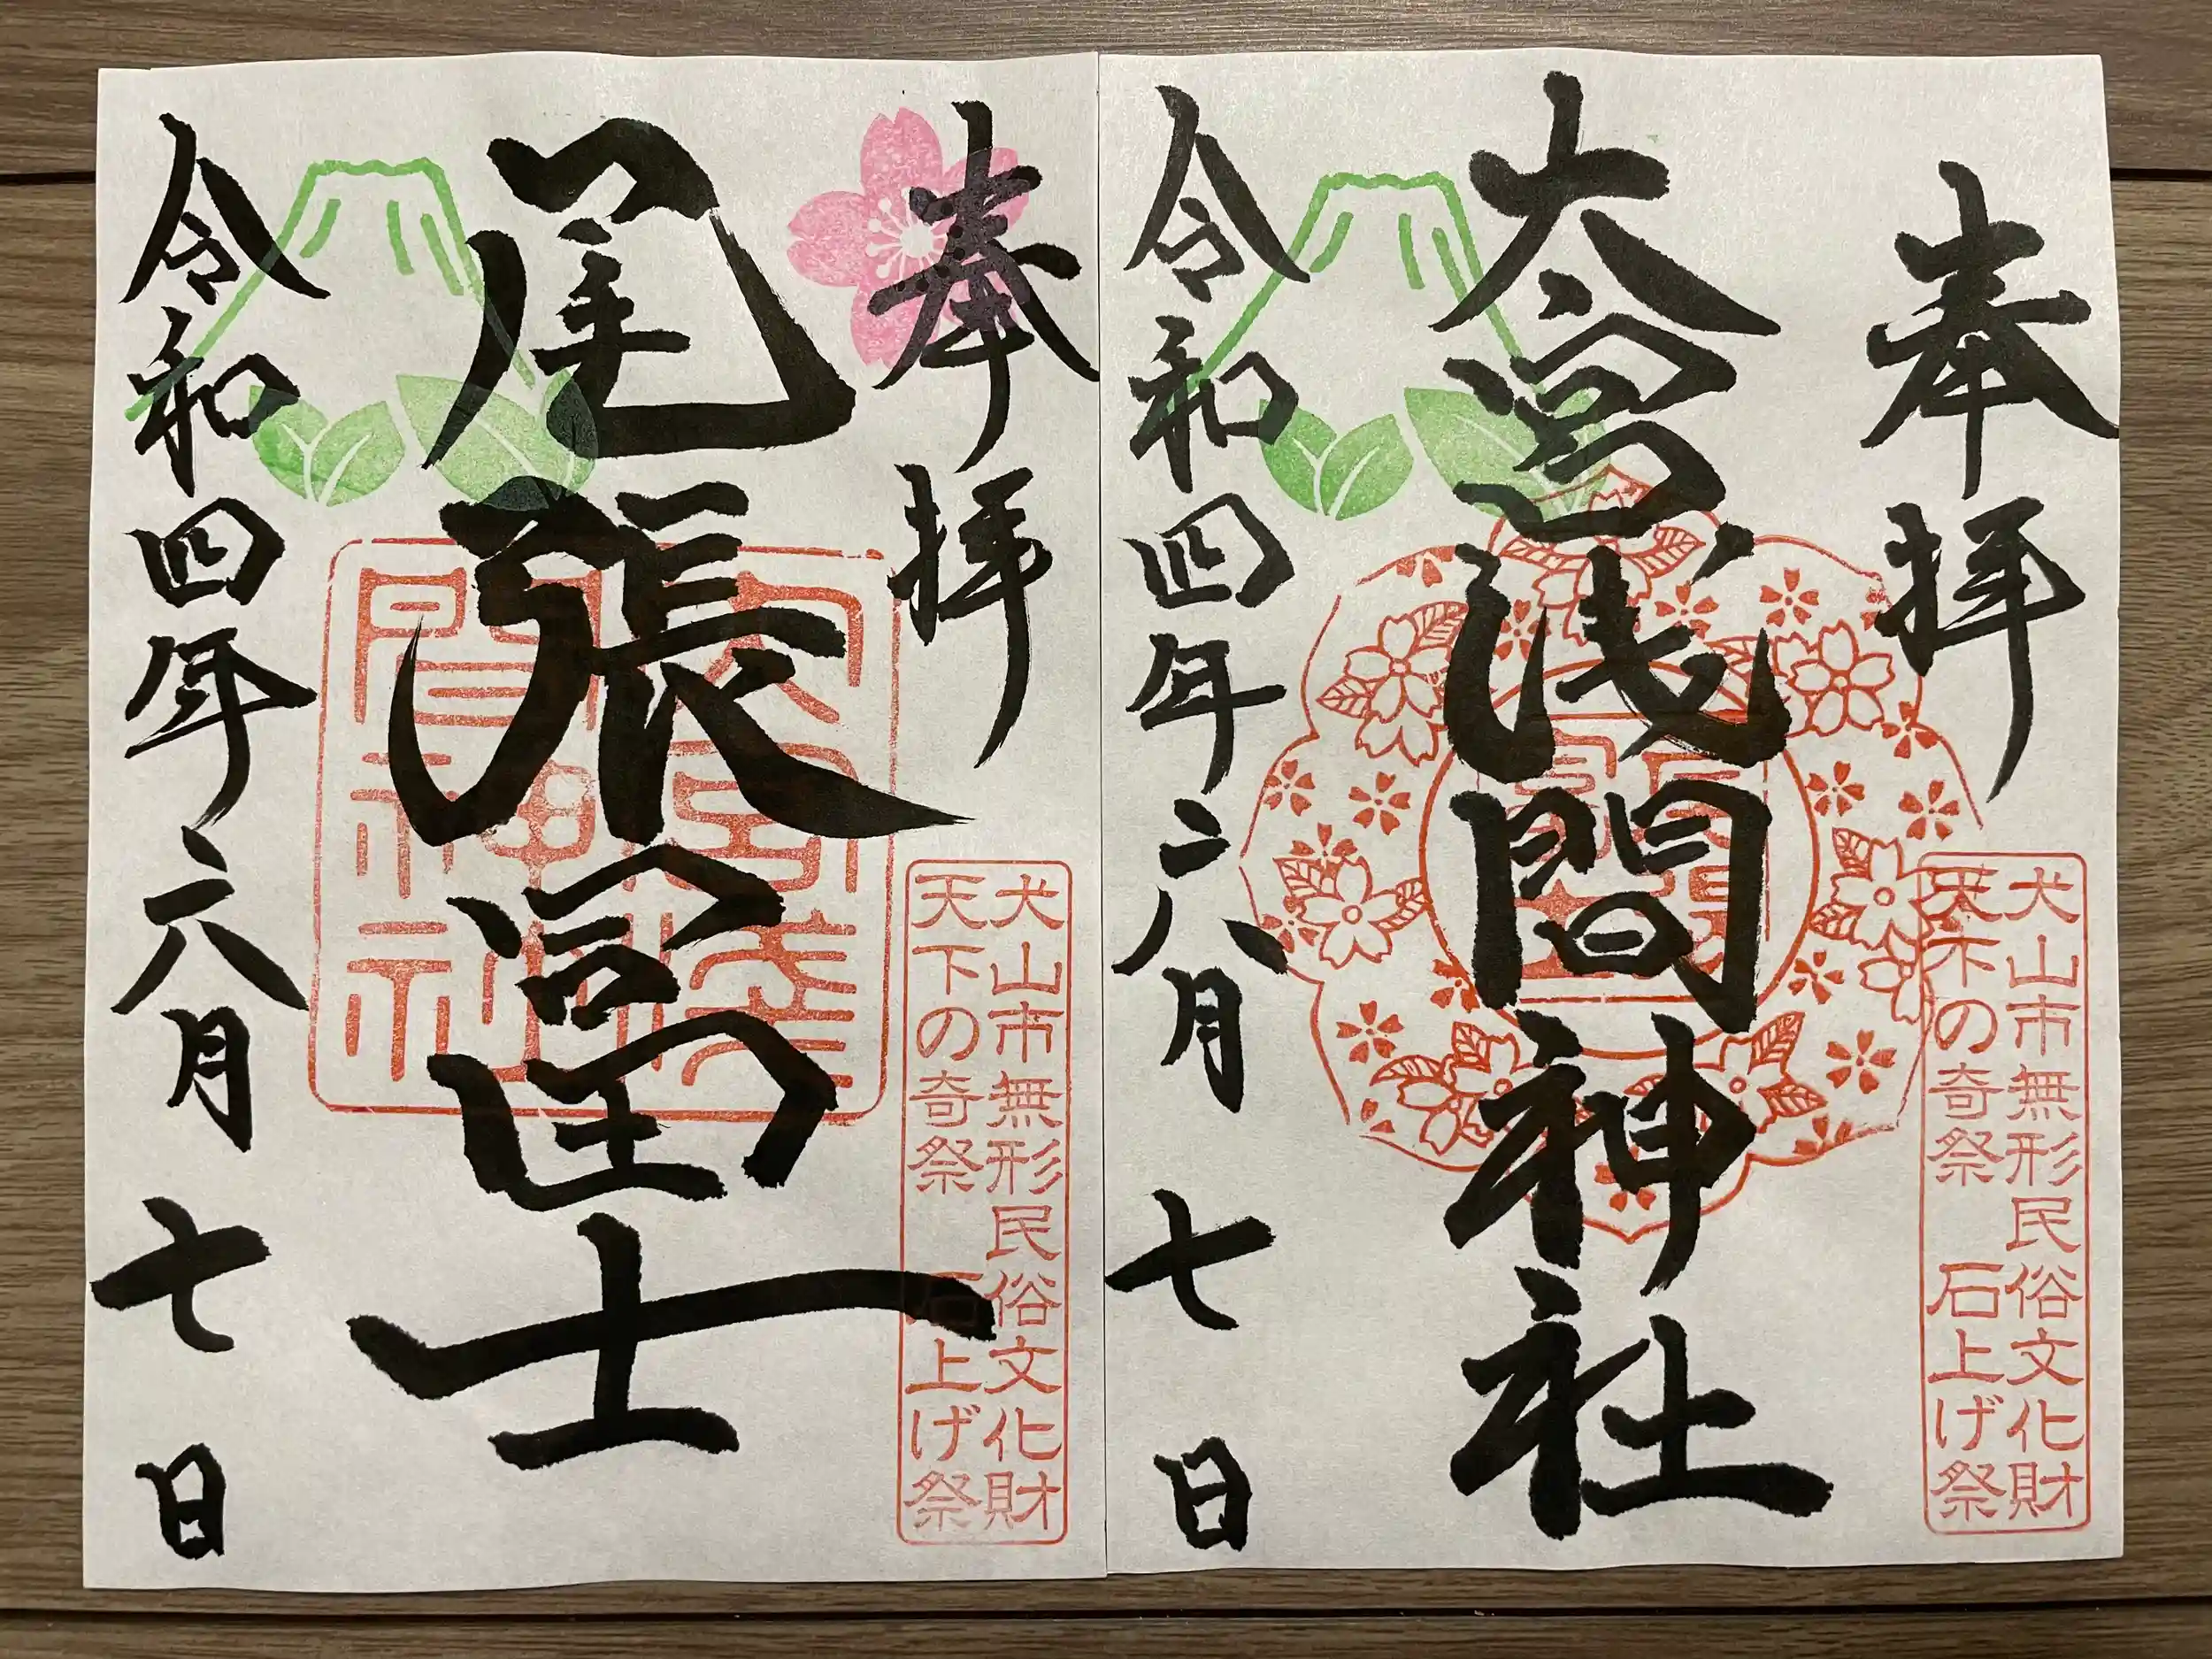 奉拝
犬山市無形民俗文化財
天下の奇祭 石上げ祭
大宮浅間神社
令和四年六月七日
奉拝
犬山市無形民俗文化財
天下の奇祭 石上げ祭
尾張冨士
大宮淺
間神社
令和四年六月七日